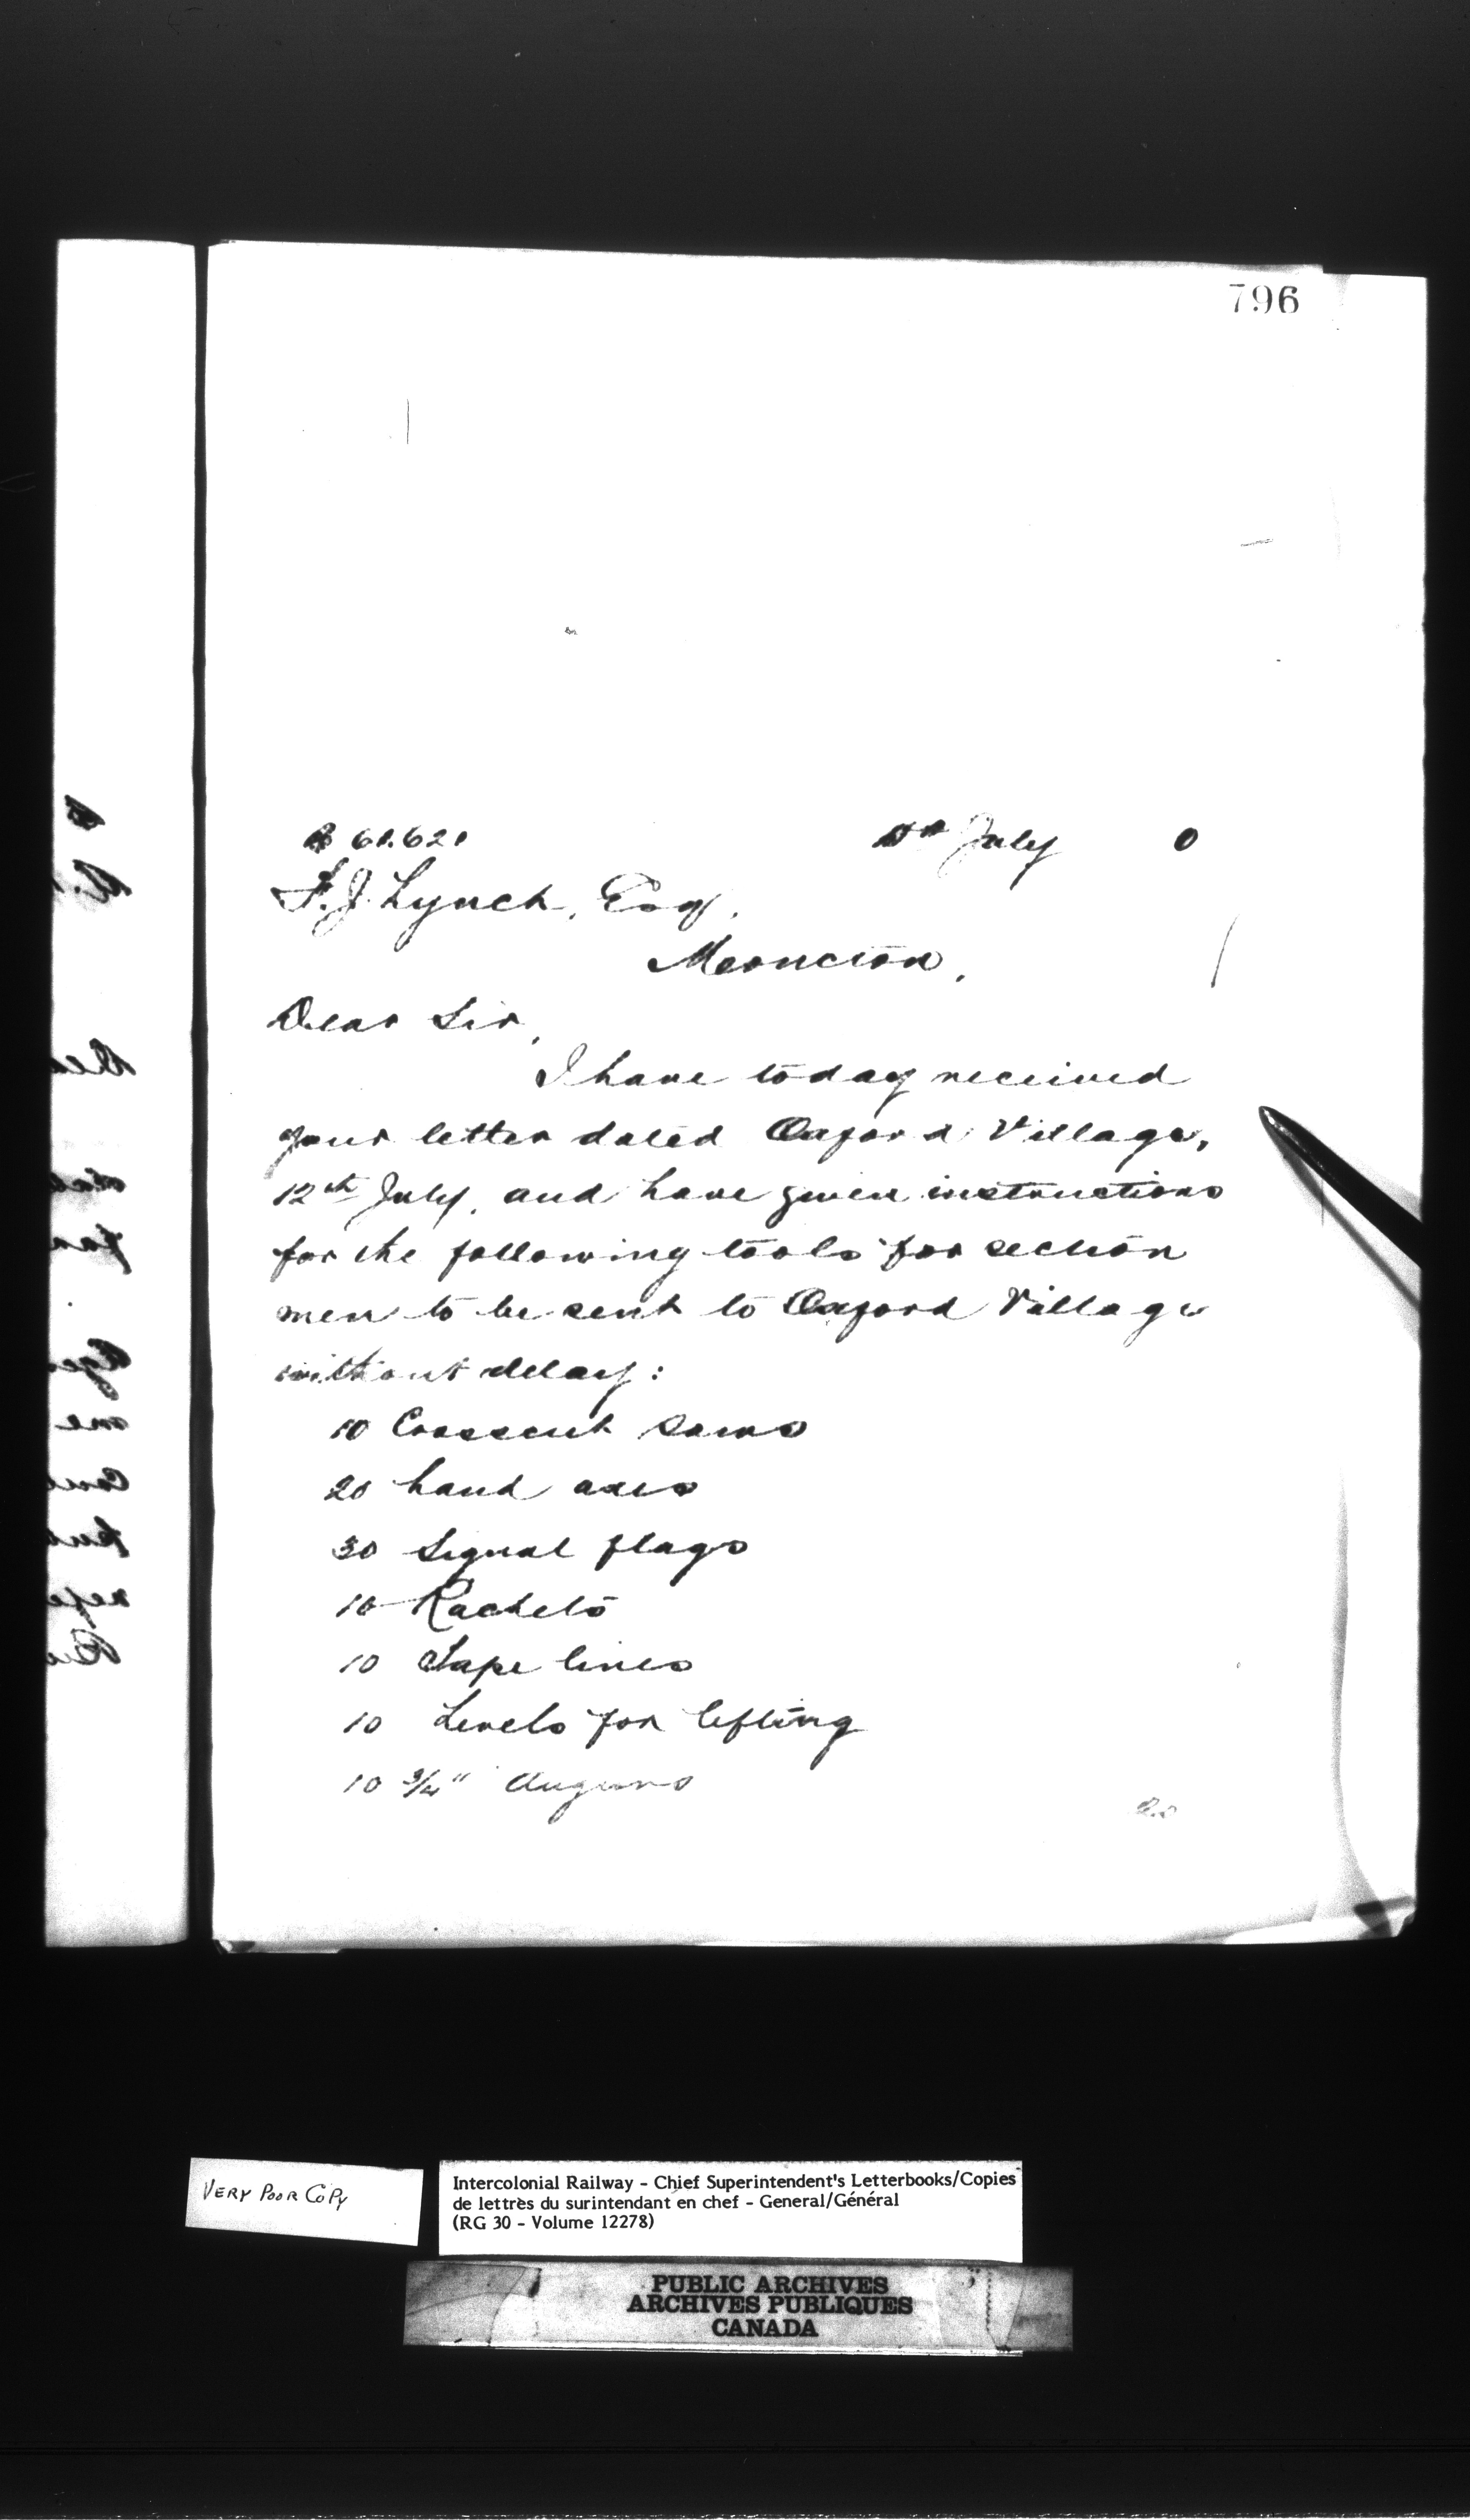 796
61.621
July 0
F. J. Lynch, Esq.
Moncton,
Dear Sir,
I have today received
your letter dated Oxford Village,
12th July, and have given instructions
for the following tools for section
men to be sent to Oxford Village
without delay:
10 Crosscut saws
20 hand axes
30 Signal flags
10 Rachets
10 Tape lines
10 Levels for lifting
10 3/4" Augurs
VERY POOR COPY
Intercolonial Railway - Chief Superintendent's Letterbooks/Copies
de lettres du surintendant en chef - General/Général
(RG 30 - Volume 12278)
PUBLIC ARCHIVES
ARCHIVES PUBLIQUES
CANADA